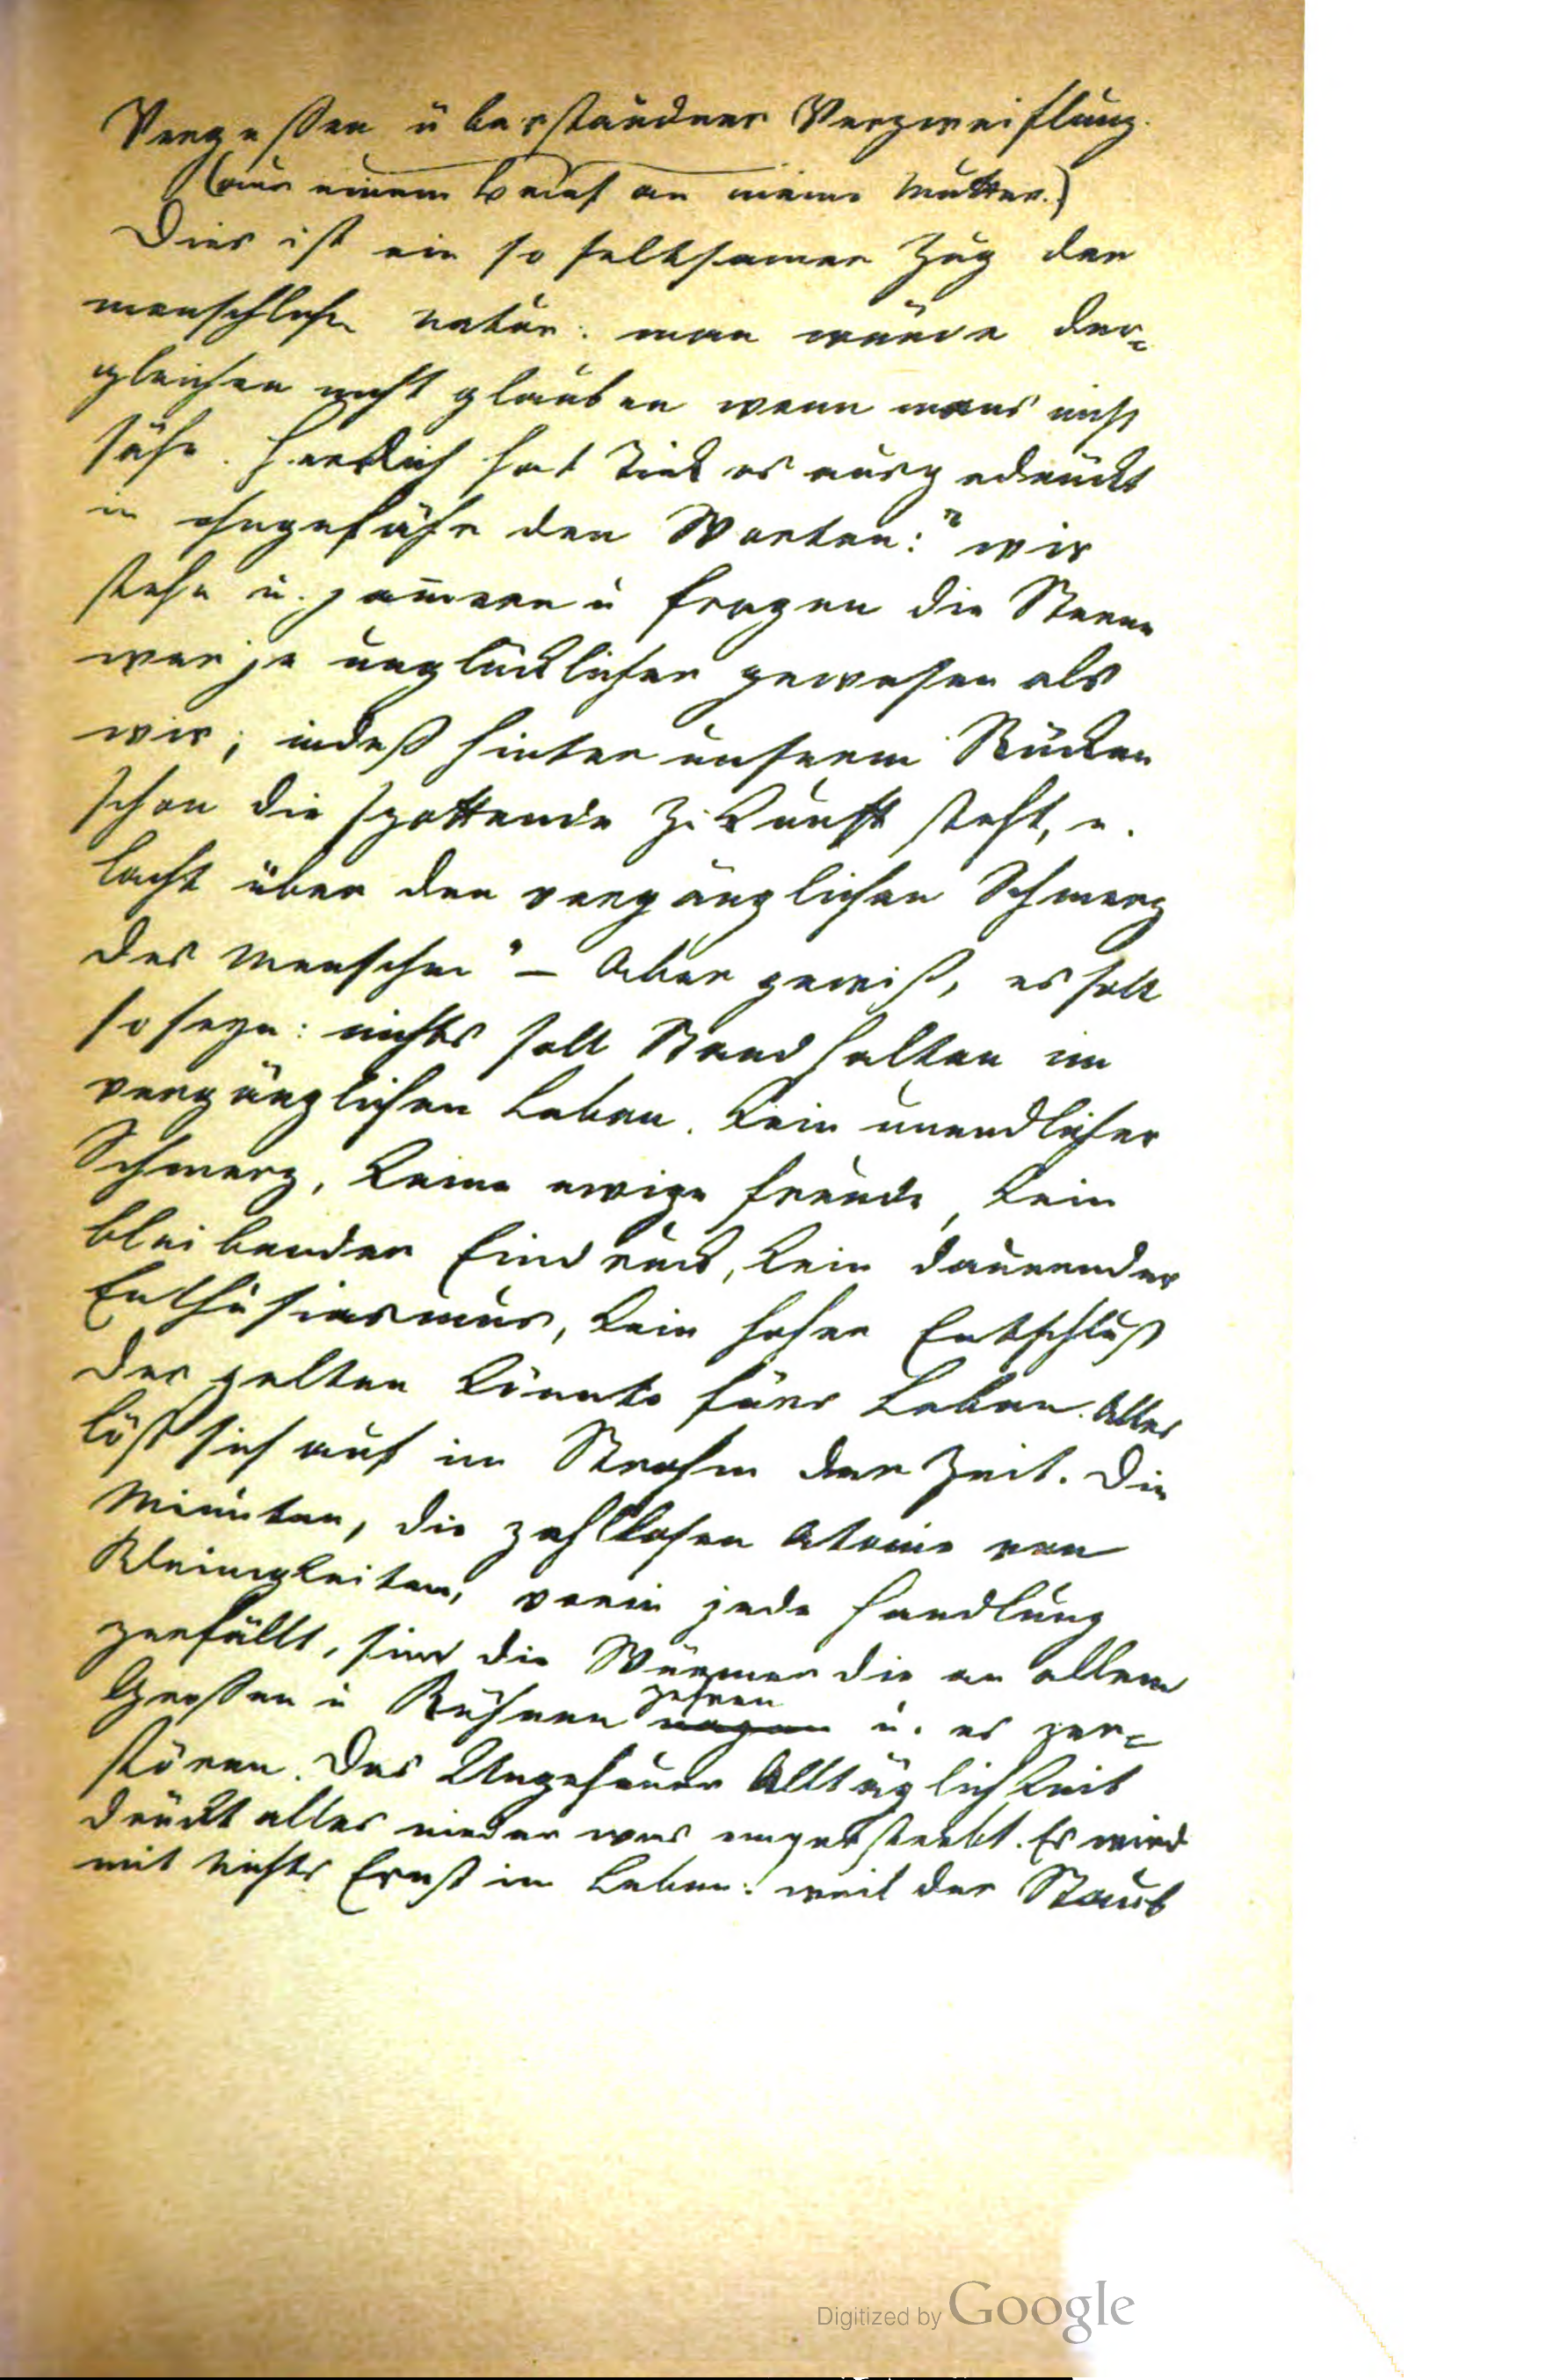 Vergessen überstandner Verzweiflung.
(aus einem Brief an meine Mutter.)
Dies ist ein so seltsamer Zug der
menschlichen Natur: man würde der=
gleichen nicht glauben wenn mans nicht
sähe. Herrlich hat Tiek es ausgedrückt
in ohngefähr den Worten: "wir
stehn u. jam̄ern u fragen die Sterne
wer je unglücklicher gewesen als
wir; indeß hinter unserm Rücken
schon die spottende Zukunft steht, u.
lacht über den vergänglichen Schmerz
des Menschen" – Aber gewiß, es soll
so seyn: nichts soll Stand halten im
vergänglichen Leben. Kein unendlicher
Schmerz, keine ewige Freude, kein
bleibender Eindruck, kein dauernder
Enthusiasmus, kein hoher Entschluß
der gelten könnte fürs Leben. Alles
löst sich auf im Strohm der Zeit. Die
Minuten, die zahllosen Atome von
Kleinigkeiten, worin jede Handlung
zerfällt, sind die Würmer die an allem
Großen u Kühnen zehren
nagen u. es zer=
stören. Das Ungeheuer Alltäglichkeit
drückt alles nieder was emporstrebt. Es wird
mit nichts Ernst im Leben: weil der Staub
Digitized by Google